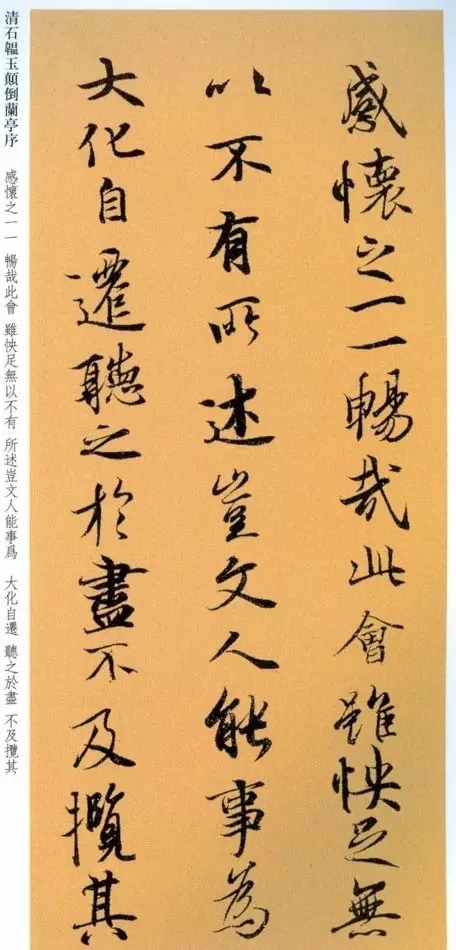 感懷之一一暢哉此會雖怏足無
以不有所述豈文人能事為
大化自遷聽之於盡不及攬其
清石韞玉顛倒蘭亭序
感懷之一一 暢哉此會 雖怏足無以不有 所述豈文人能事爲 大化自遷 聽之於盡 不及攬其